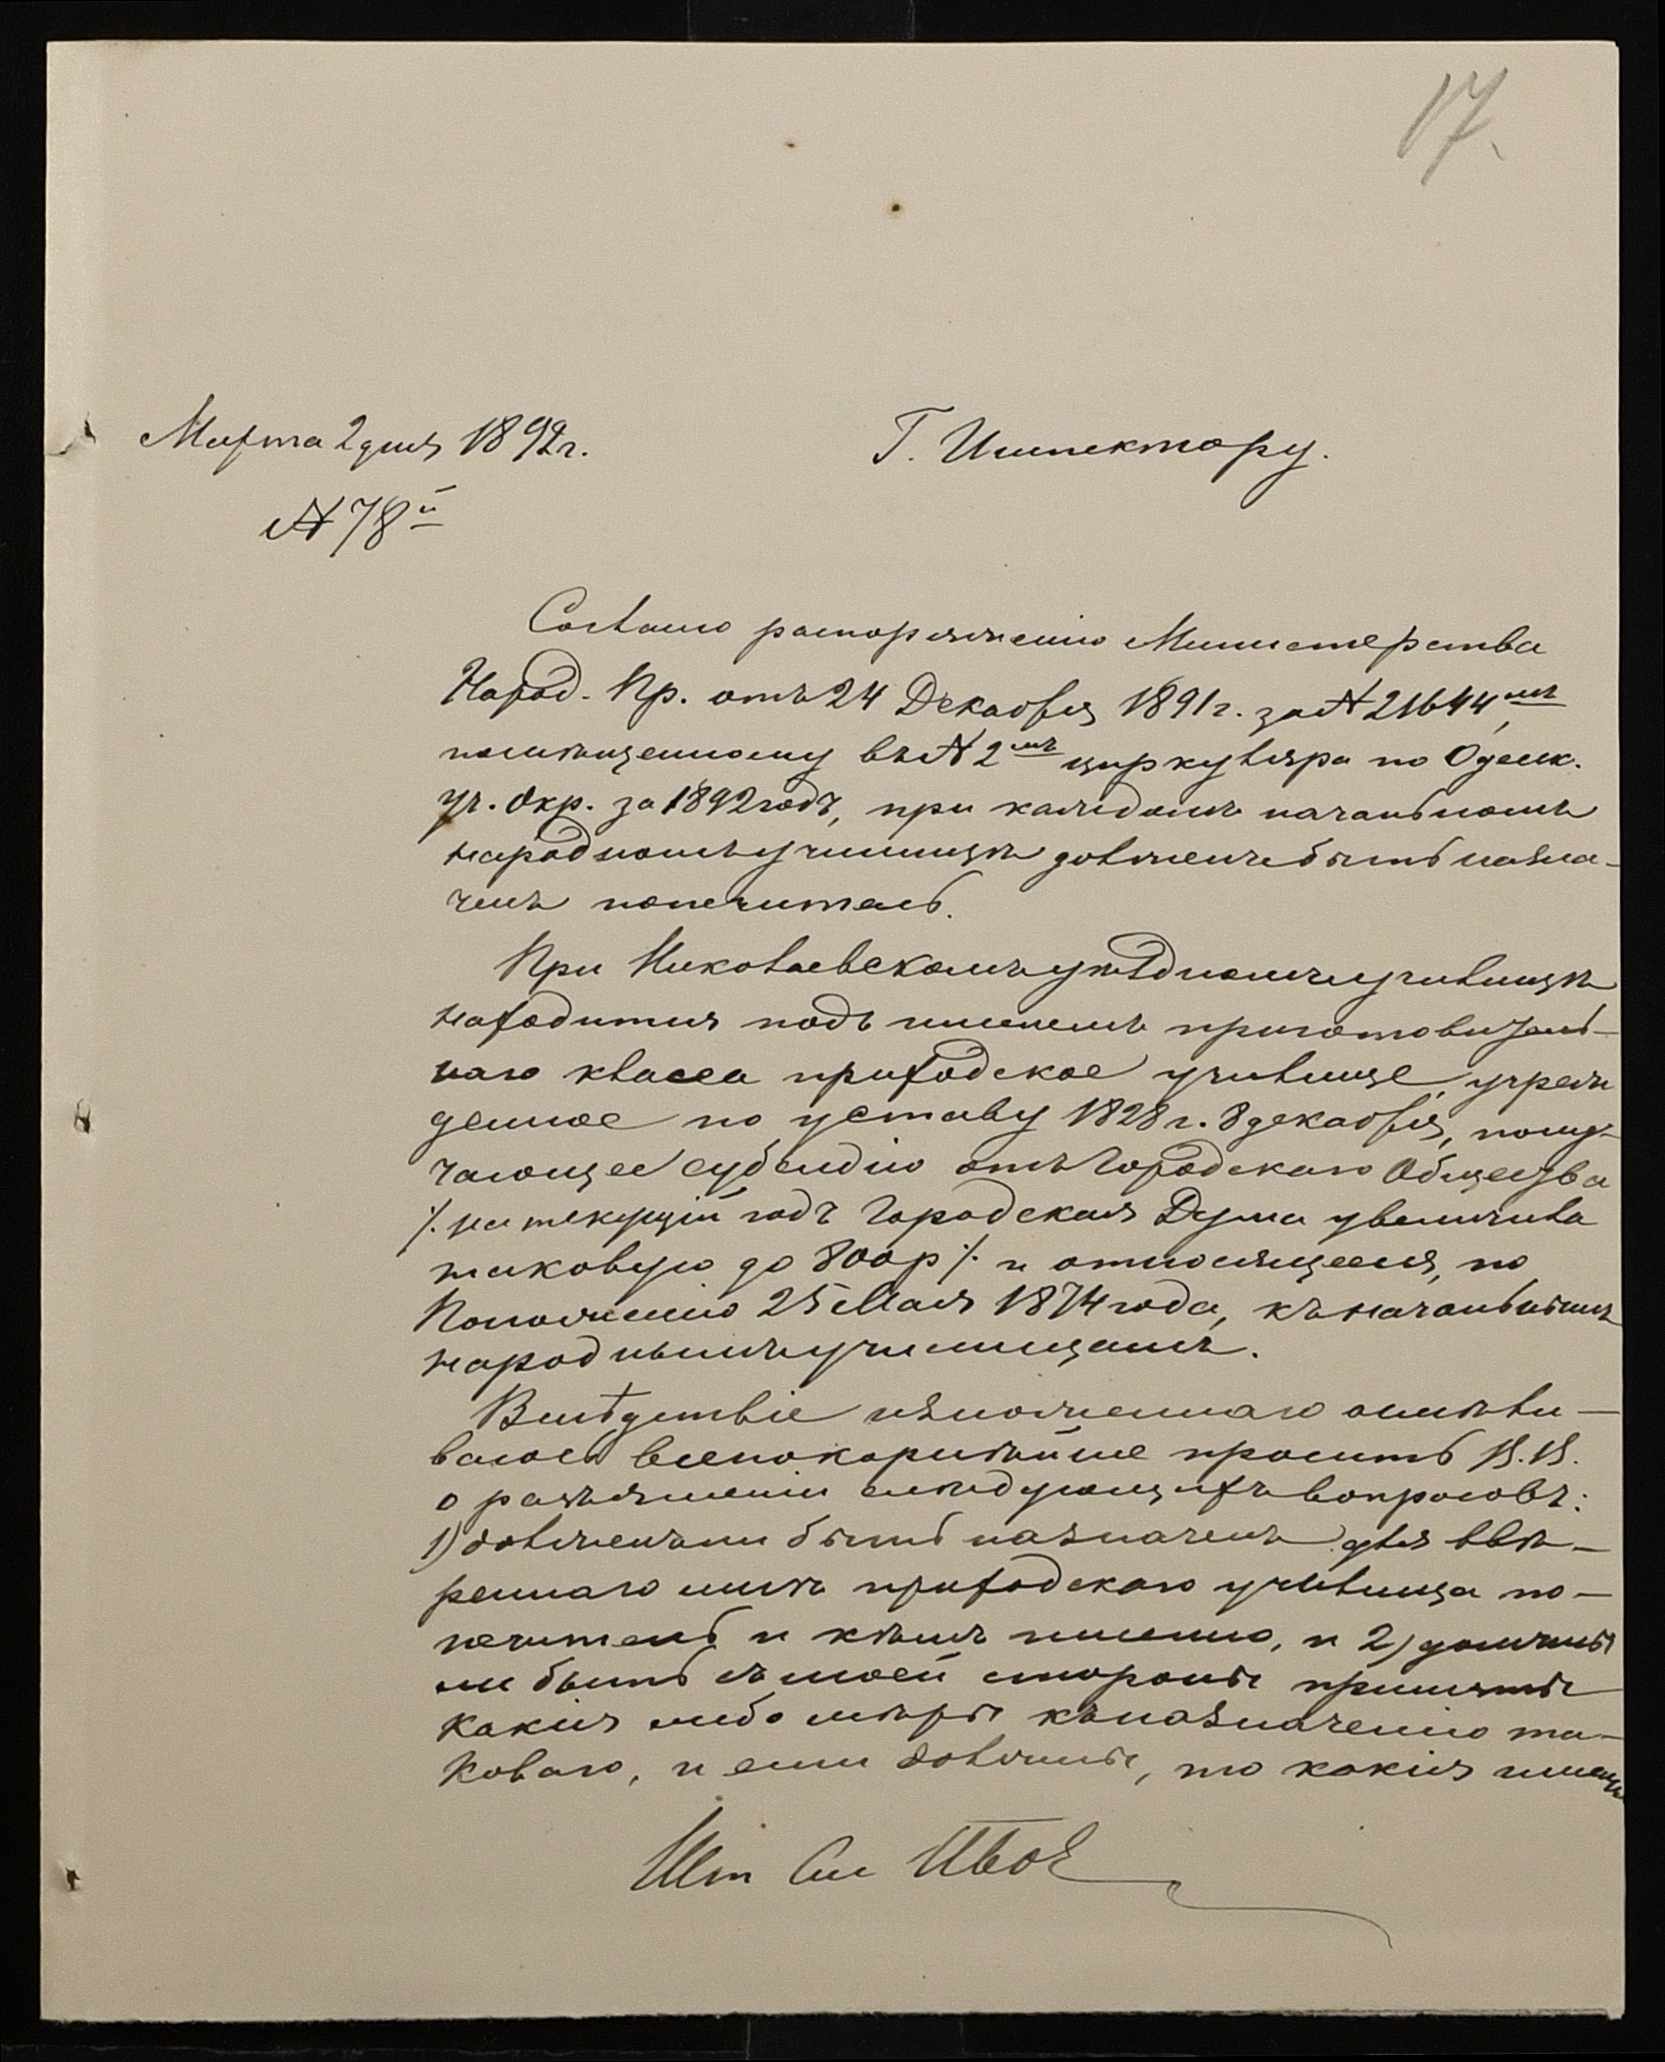 17.
Марта 2 дня 1892 г.
Г. Инспектору.
№ 78й
Согласно распоряженію Министерства
Народ. Пр. отъ 24 Декабря 1891 г. за № 21644мъ,
помѣщенному въ № 2мъ циркуляра по Одесск.
Уч. Окр. за 1892 годъ, при каждомъ начальномъ
народномъ училищѣ долженъ быть назна-
ченъ попечитель.
При Николаевскомъ уѣздномъ училищѣ
находится подъ именемъ приготовитель-
наго класса приходское училище, учреж
денное по уставу 1828 г. 8 декабря, полу-
чающее субсидію отъ Городскаго Общества
/. на текущій годъ Городская Дума увеличила
таковую до 800 р /. и относящееся, по
Положенію 25 Мая 1874 года, къ начальнымъ
народнымъ училищамъ.
Вслѣдствіе изложеннаго осмѣли-
ваюсь всепокорнѣйше просить В. В.
о разъясненіи слѣдующихъ вопросовъ:
1) долженъ ли быть назначенъ для ввѣ-
реннаго мнѣ приходскаго училища по-
печитель и кѣмъ именно, и 2) должны
ли быть съ моей стороны приняты
какія либо мѣры къ назначенію та-
коваго, и если должны, то какія именно
Шт См